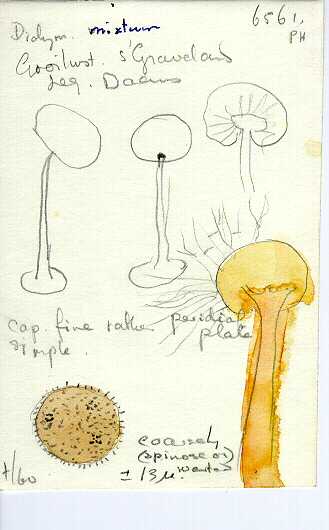 Didym. mixtum
6561,
PH
Gooilust. s'Graveland
Leg. Daams
cap. fine rather
simple.
peridial
plate
coarsely
(spinose or)
warted
± 13 µ.
7/60